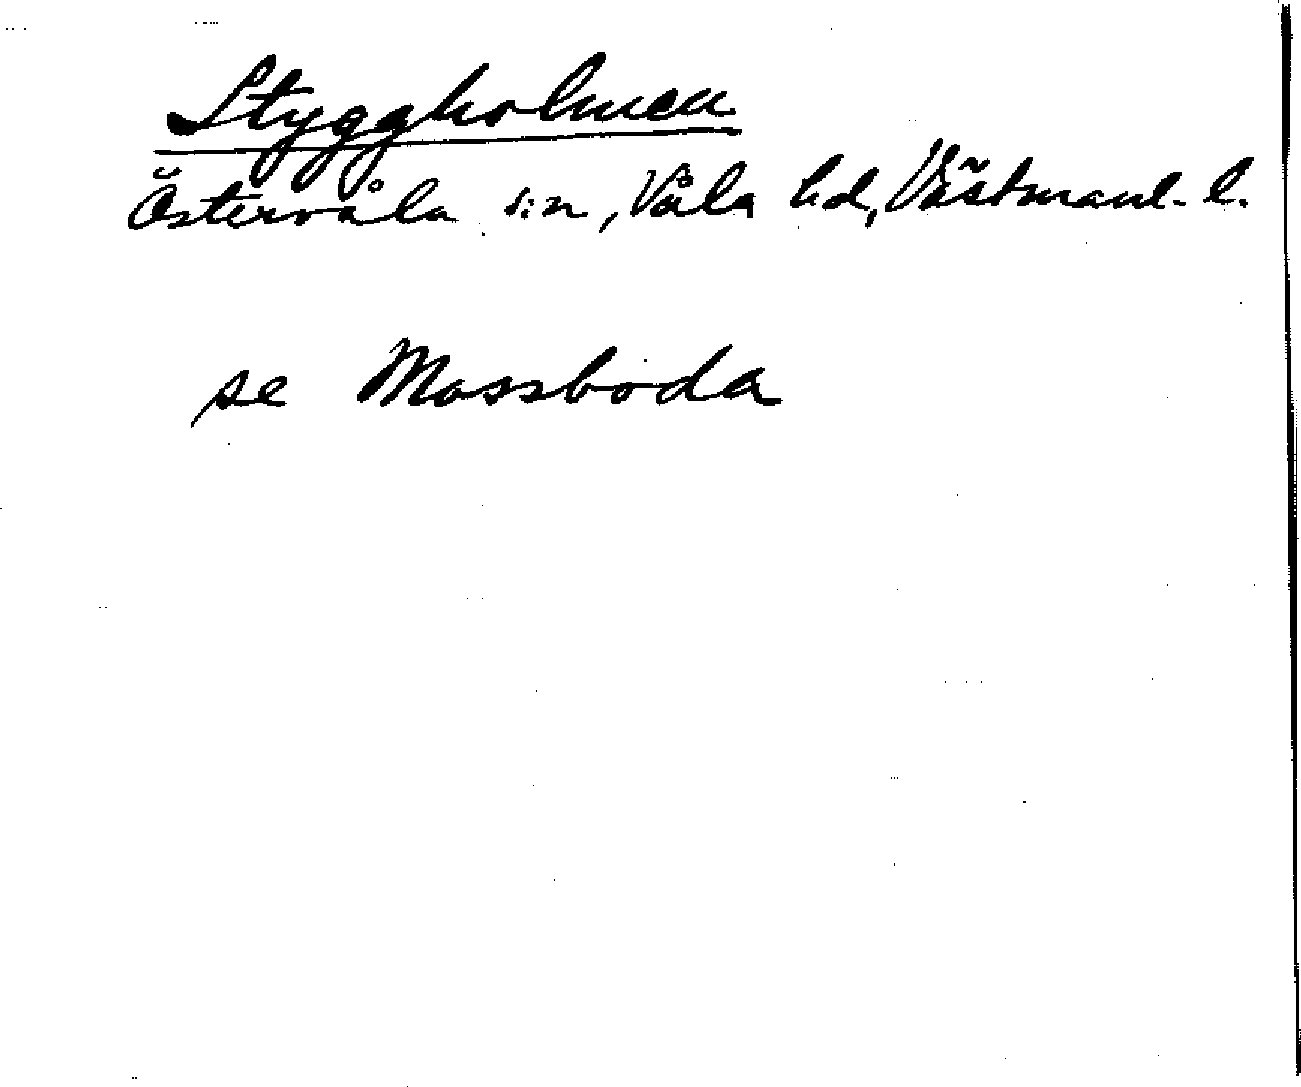 Styggholmen
Östervåla s:n, Våla hd, Västmanl. l.
se Mossboda